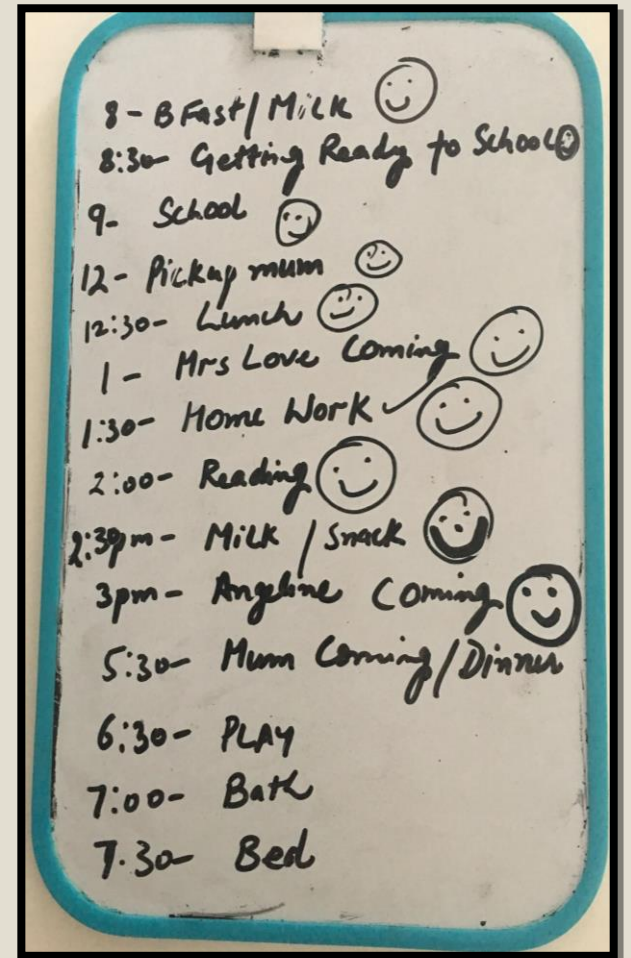 8 - BFast / Milk
8:30 - Getting Ready to School
9 - School
12 - Pickup mum
12:30 - Lunch
1 - Mrs Love Coming
1:30 - Home Work
2:00 - Reading
2:30pm - Milk / Snack
3pm - Angeline Coming
5:30 - Mum Coming / Dinner
6:30 - PLAY
7:00 - Bath
7.30 - Bed